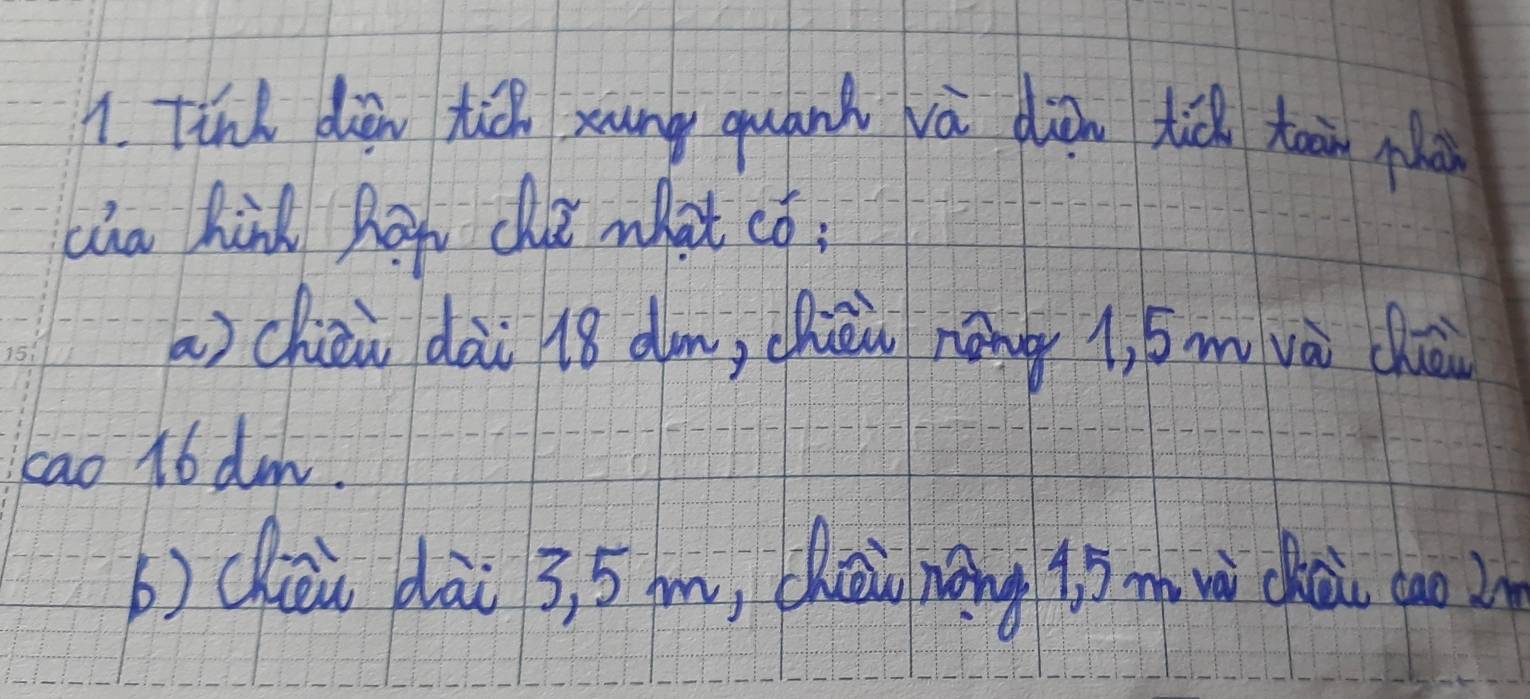 1. Tính diện tích xung quanh và diện tích toàn phần
của hình hộp chữ nhật có:
a) Chiều dài 18 dm, chiều rộng 1,5 m và chiều
cao 16 dm.
b) Chiều dài 3,5 m, chiều rộng 1,5 m và chiều cao 2m